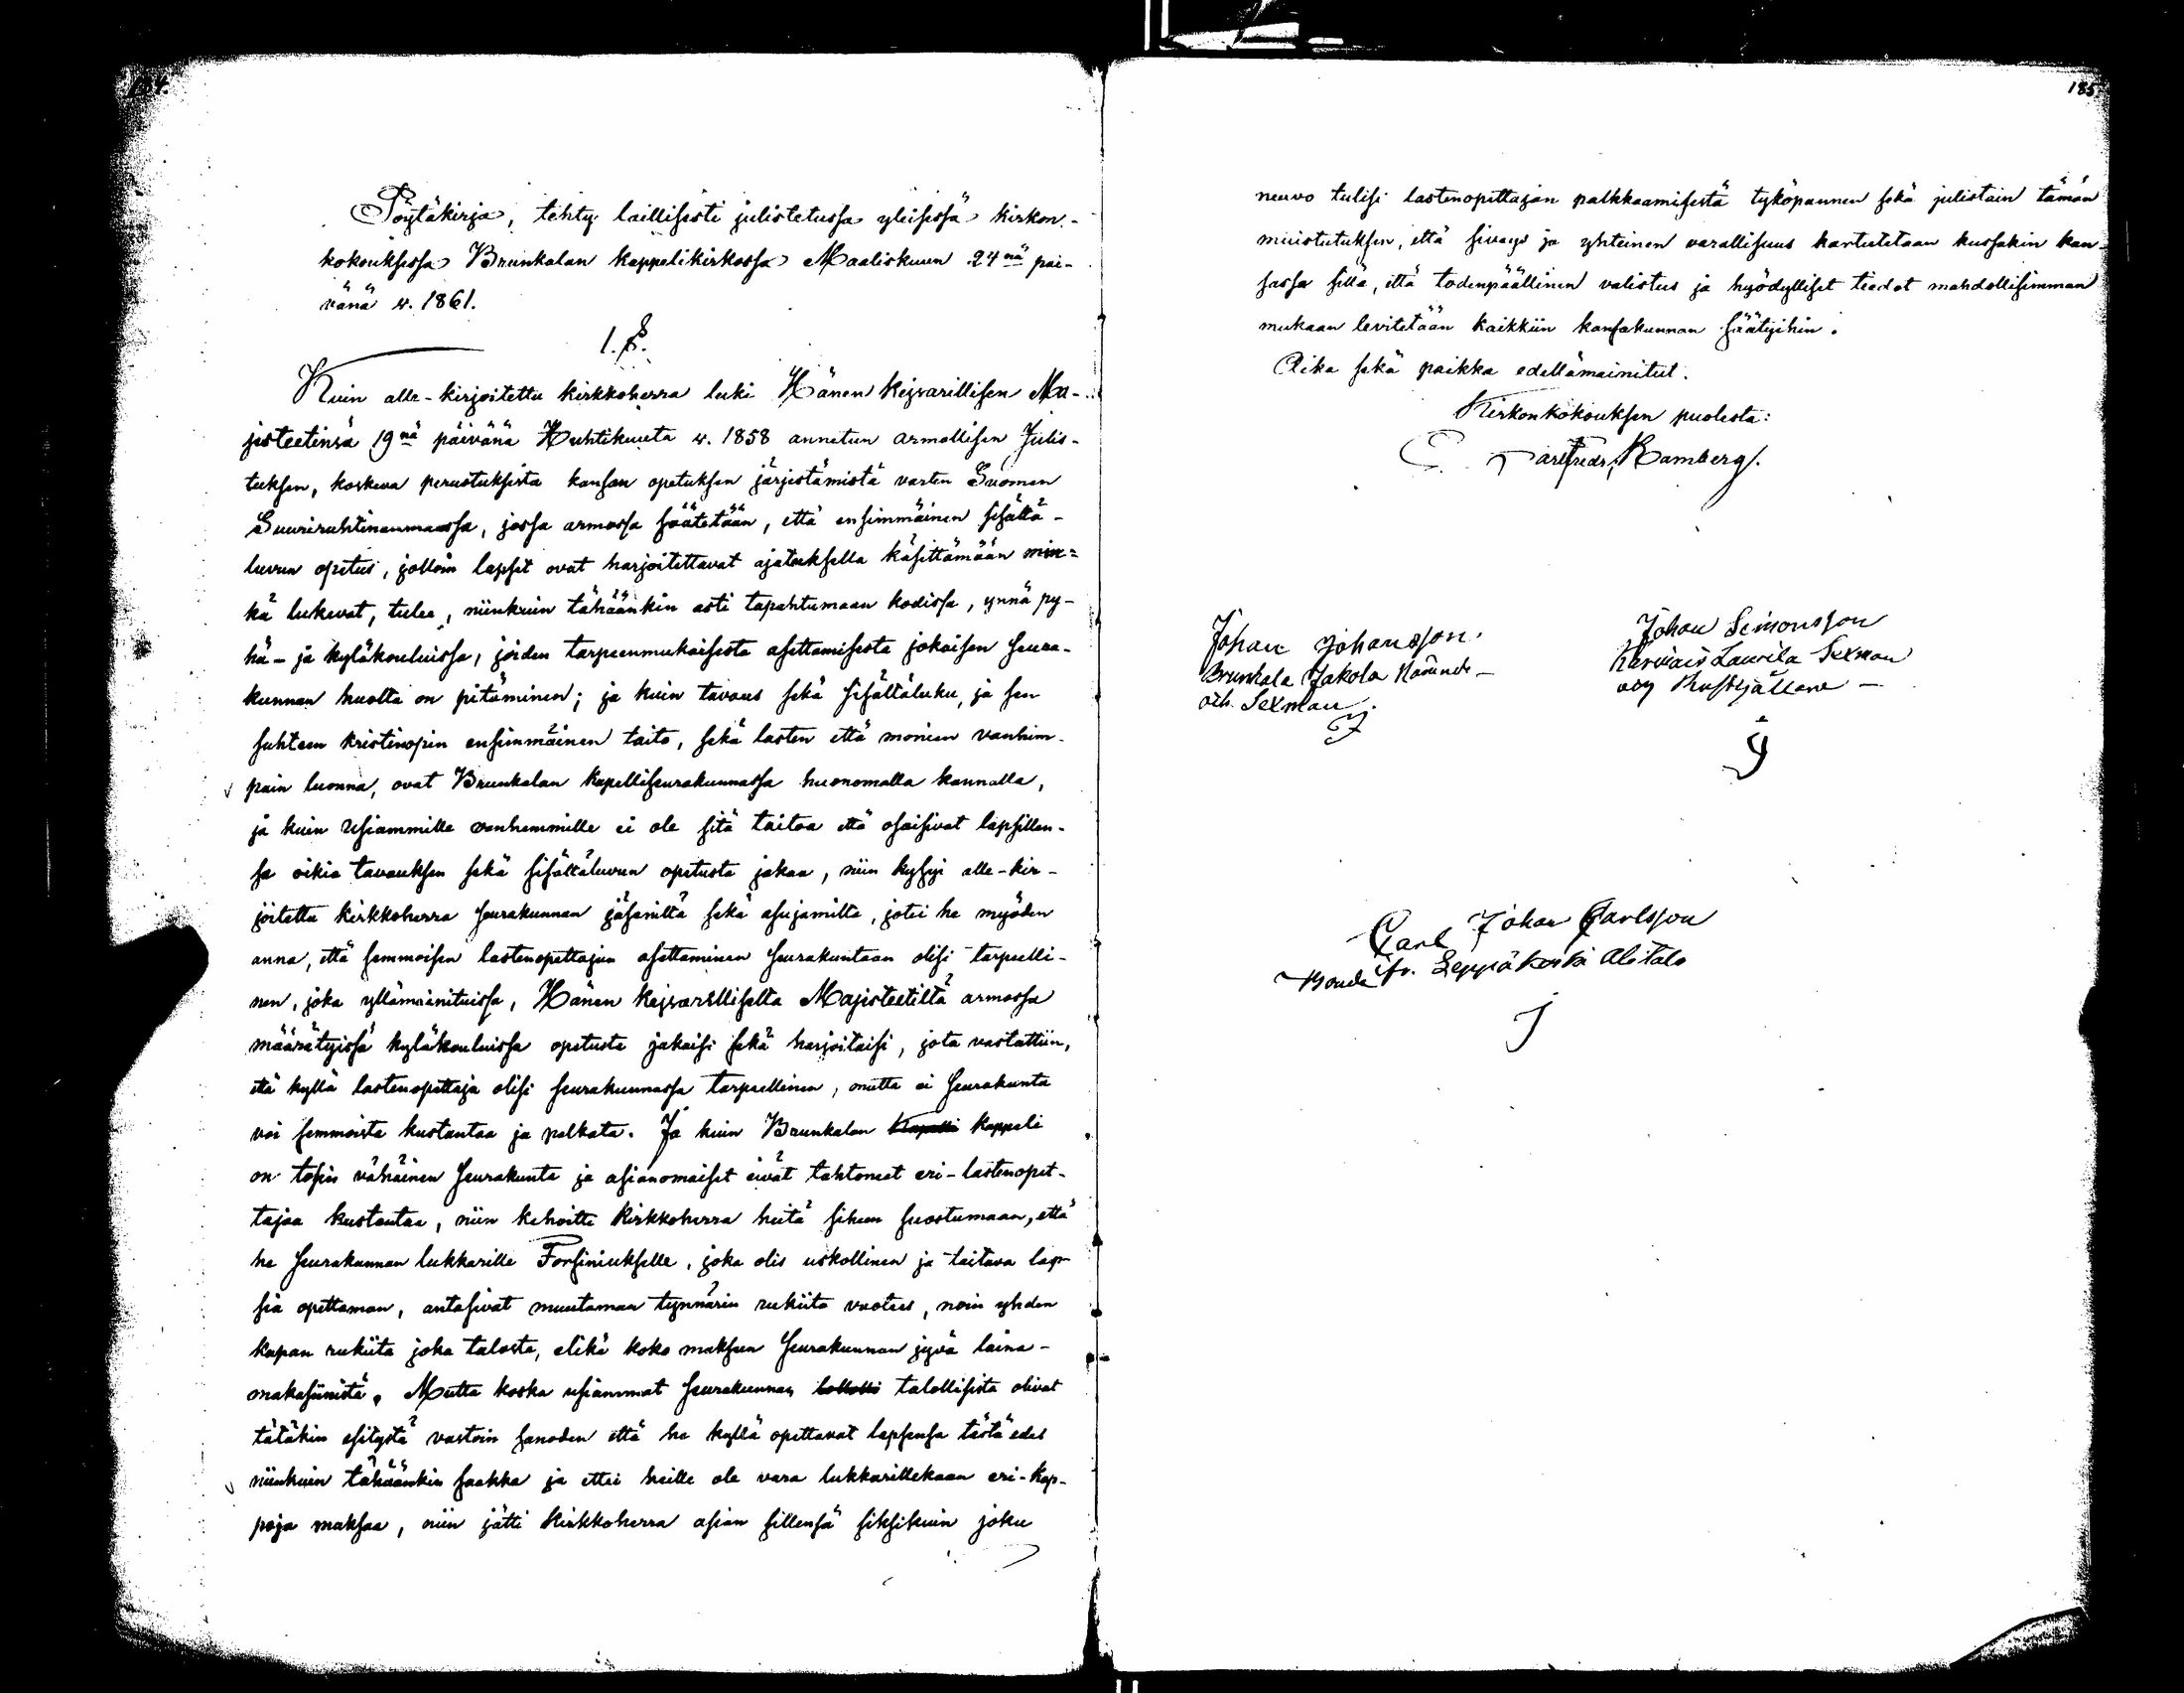 184.
Pöytäkirja, tehty laillisesti julistetussa yleisessä kirkon-
kokouksessa Brunkalan kappelikirkossa Maaliskuun 24nä päi-
vänä v. 1861.
1. §.
Kuin alle-kirjoitettu kirkkoherra luki Hänen Keisarillisen Ma-
jisteetinsä 19nä päivänä Huhtikuuta v. 1858 annetun armollisen Julis-
tuksen, koskeva perustuksista kansan opetuksen järjestämistä varten Suomen
Suuriruhtinanmaassa, jossa armossa säätetään, että ensimmäinen sisältä-
luvun opetus, jolloin lapset ovat harjoitettavat ajatuksella käsittämään min-
kä lukevat, tulee, niinkuin tähäänkin asti tapahtumaan kodissa, ynnä py-
hä- ja kyläkouluissa, joiden tarpeenmukaisesta asettamisesta jokaisen seura-
kunnan huolta on pitäminen; ja kuin tavaus sekä sisältäluku, ja sen
suhteen kristinopin ensimmäinen taito, sekä lasten että monien vanhim-
pain luonna, ovat Brunkalan kapelliseurakunnassa huonomalla kannalla,
ja kuin usiammille vanhemmille ei ole sitä taitoa että osaisivat lapsillen-
sa oikia tavauksen sekä sisältäluvun opetusta jakaa, niin kysyi alle-kir-
joitettu kirkkoherra seurakunnan jäseniltä sekä asujamilta, jotei he myöden
anna, että semmoisen lastenopettajan asettaminen seurakuntaan olisi tarpeelli-
nen, joka yllämainituissa, Hänen Keisarilliselta Majisteetiltä armossa
määrätyissä kyläkouluissa opetusta jakaisi sekä harjoitaisi, jota vastattiin,
että kyllä lastenopettaja olisi seurakunnassa tarpeellinen, mutta ei seurakunta
voi semmoista kustantaa ja palkata. Ja kuin Brunkalan Kapelli Kappeli
on tosin vähäinen seurakunta ja asianomaiset eivät tahtoneet eri-lastenopet-
tajaa kustantaa, niin kehoitti Kirkkoherra heitä siheen suostumaan, että
he seurakunnan lukkarille Forsiniukselle, joka olis uskollinen ja taitava lap-
sia opettaman, antasivat muutaman tynnärin rukiita vuotees, noin yhden
kapan rukiita joka talosta, elikä koko maksun seurakunnan jyvä laina-
makasiinistä. Mutta koska usiammat seurakunnan talollisista olivat
tätäkin esitystä vastoin sanoden että he kyllä opettavat lapsensa tästä edes
niinkuin tähäänkin saakka ja ettei heille ole vara lukkarillekaan eri-kap-
poja maksaa, niin jätti Kirkkoherra asian sillensä siksikuin joku
185.
neuvo tulisi lastenopettajan palkkaamisesta tyköpannun sekä julistain tämän
muistutuksen, että siveys ja yhteinen varallisuus kartutetaan kussakin kan-
sassa sillä, että todenpäällinen valistus ja hyödylliset tiedot mahdollisimman
mukaan levitetään kaikkiin kansakunnan säätyihin.
Aika sekä paikka edellämainitut.
Kirkonkokouksen puolesta:
Carl Fredr. Ramberg.
Johan Johansson.
Brunkala Jakola
och Sexman
Johan Simonsson
Laurila Sexman
Carl Johan Carlsson
Bonde fr. Leppäkoski Alitalo